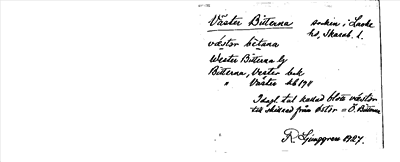 Väster Bitterna socken i Laske
hd, Skarab. l.
västər bètəna
Wester Bitterna by
Bitterna, Vester
" Väster
I dagl. tal kallad blott västər
till skillnad från östər = Ö. Bitterna
R. Ljunggren 1927.